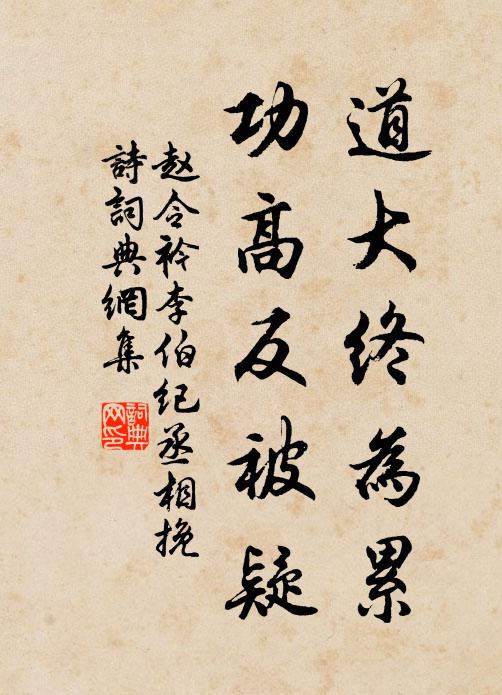 道大終為累
功高反被疑
赵令衿李伯纪丞相挽
詩詞典網集
詞典网印